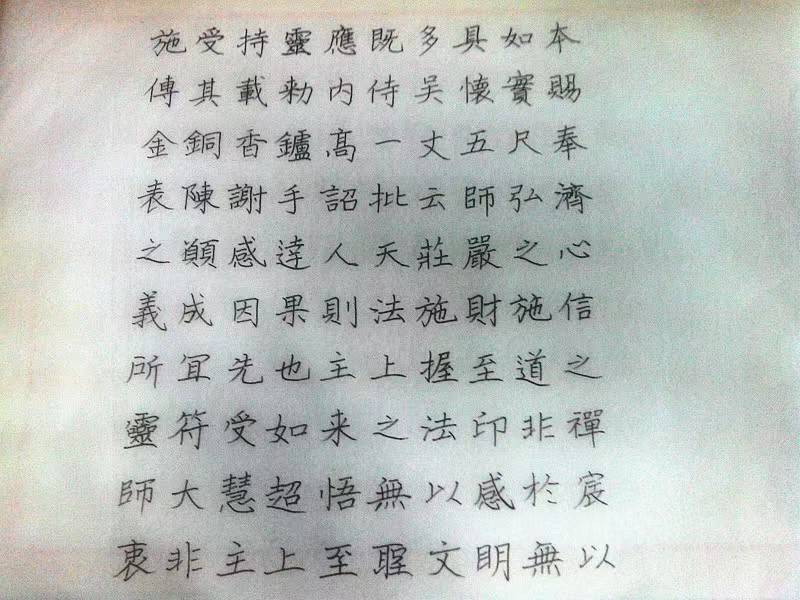 施受持靈應既多具如本
傳其載勑內侍吴懷實賜
金銅香鑪髙一丈五尺奉
表陳謝手詔批云師弘濟
之願感達人天莊嚴之心
義成因果則法施財施信
所冝先也主上握至道之
靈符受如来之法印非禪
師大慧超悟無以感於宸
衷非主上至聖文明無以